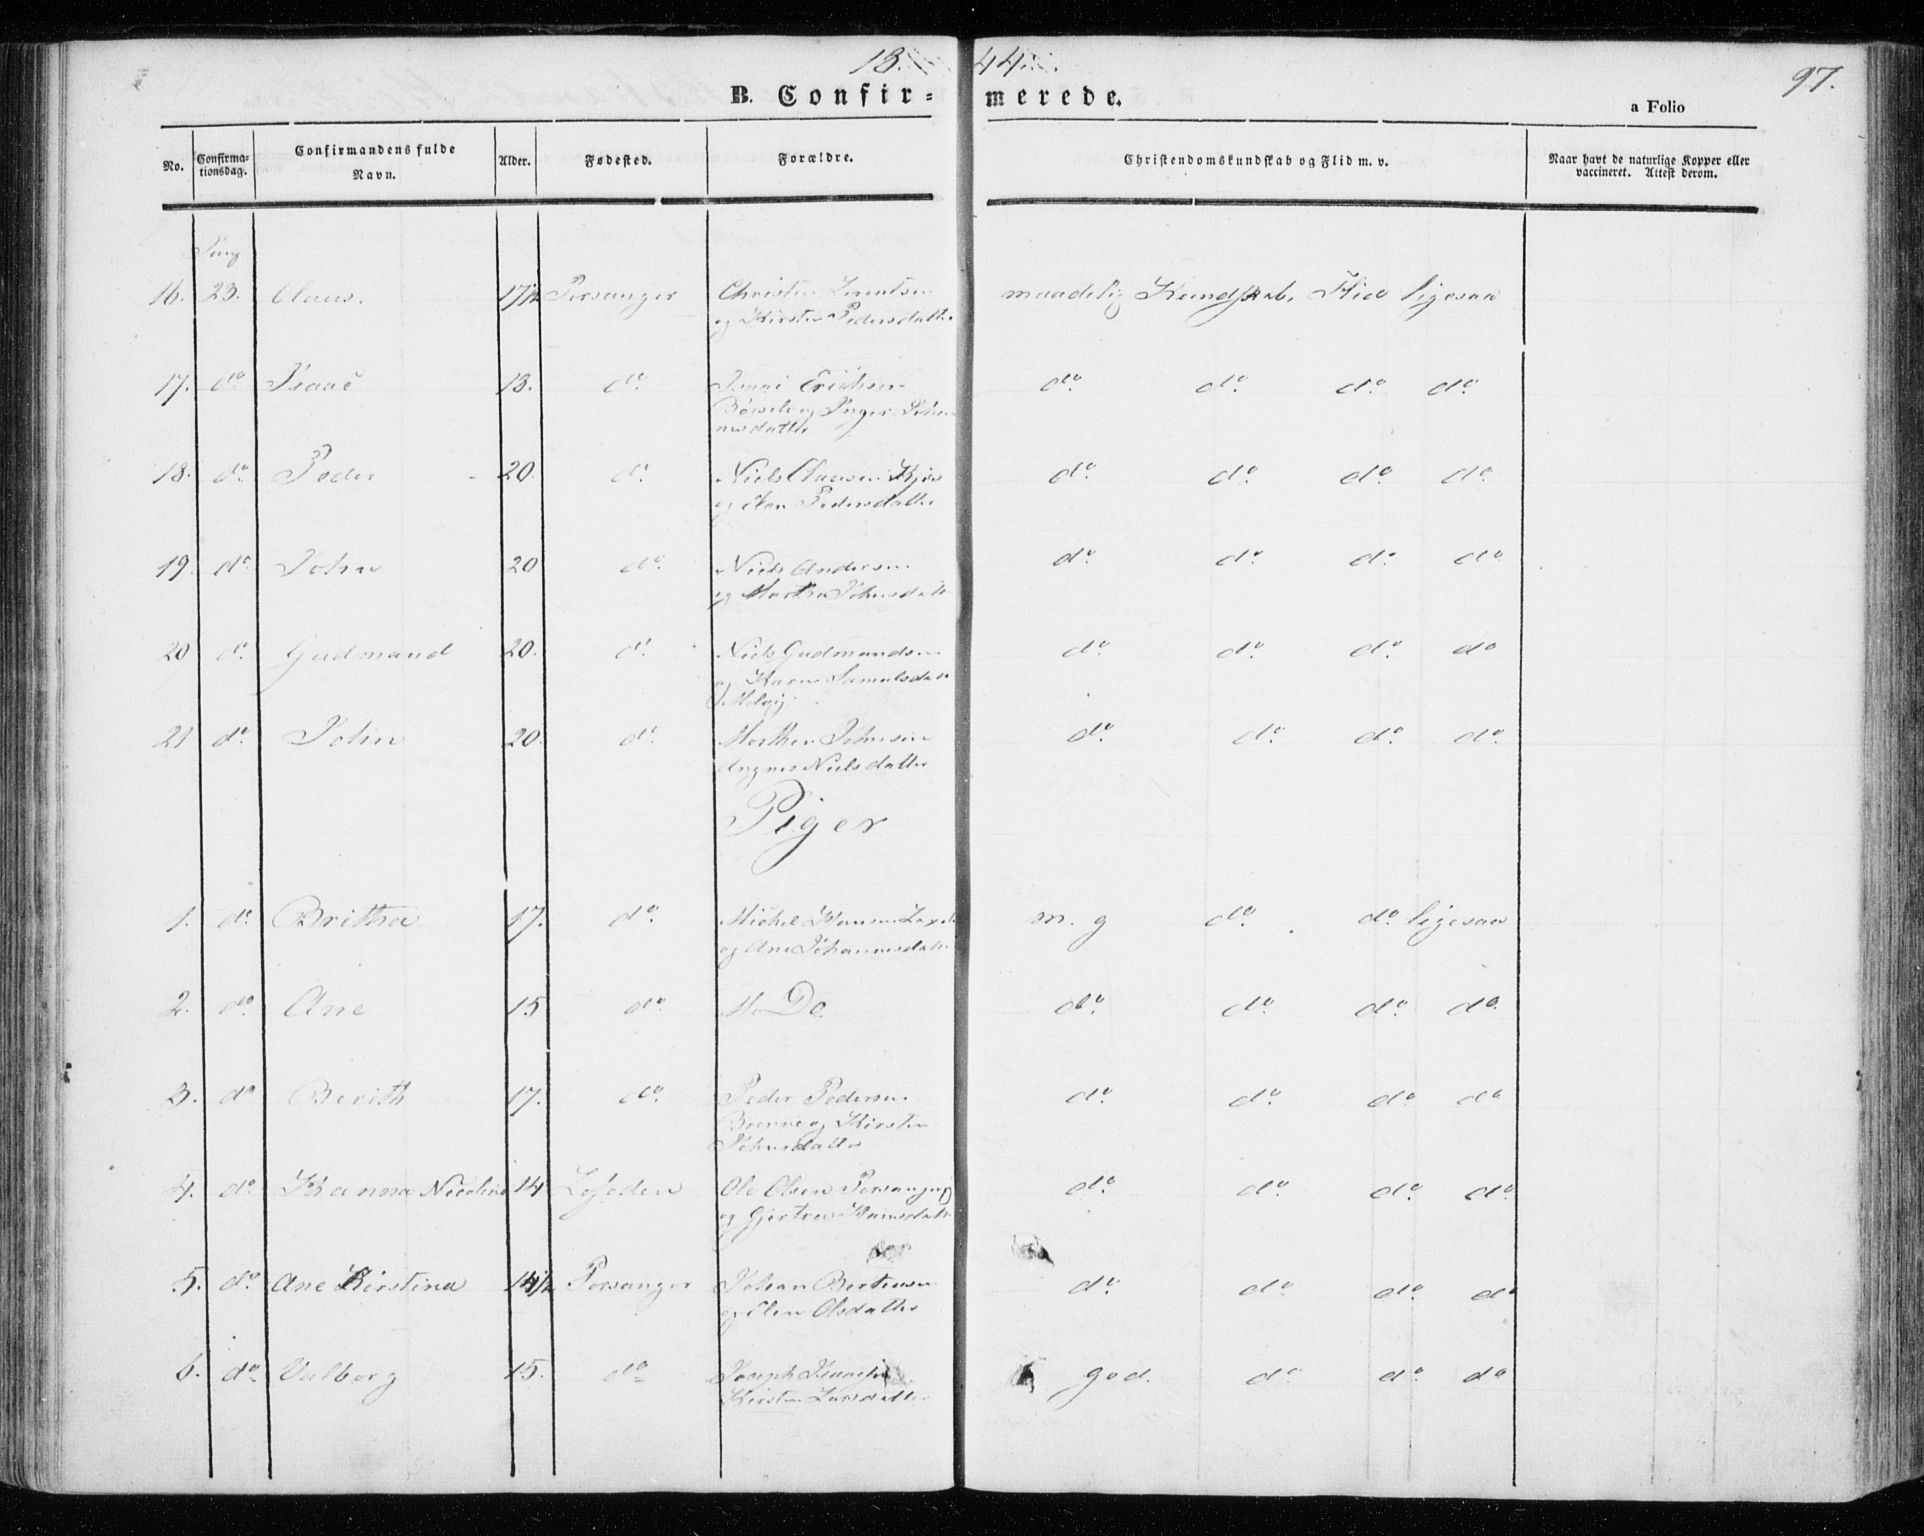 18 44.
97.
B. Confir= merede.
a Folio
No.
Confirma-
tionsdag.
Confirmandens fulde
Navn.
Alder.
Fødested.
Forældre.
Christendomskundskab og Flid m. v.
Naar havt de naturlige Kopper eller
vaccineret. Attest derom.
16. 23. Claus. 17½ Porsanger Christen Lorentsen maadelig Kundskab, Flid ligesaa
og Kirsten Pedersdatter
17. do Isaac 18. do Erichsen do do do do
og Inger
datter
18. do Peder 20. do Niels Clausen do do do do
og Pedersdatter
19. do John 20 do Niels Andersen do do do do
og Martha Johnsdatter
20 do Gudmand 20. do Niels Gudmandsen do do do do
og Karen Samulsdatter
21 do John 20. do Morthen Johnsen do do do do
Angnes Nielsdatter
Piger
1. do Brittha 17. do Michel Hansen m. g do do ligesaa
og Ane Johannesdatter
2. do Ane 15 do Do do do do do
3. do Berith 17. do Peder Pedersen do do do do
og Kirsten
Johnsdatter
4. do Hanna Nicolina 14 Ole Olsen Porsanger do do do do
og Hansdatter
5. do Ane Kirstina 14½ Porsanger Johan Berthensen do do do do
og Elen Olsdatter
6. do Valborg 15. do Joseph god. do do do
Kirsten Larsdatter